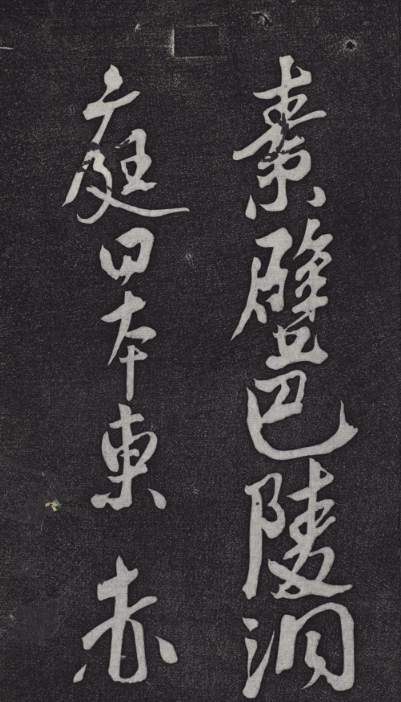 素壁巴陵洞
庭日本東赤